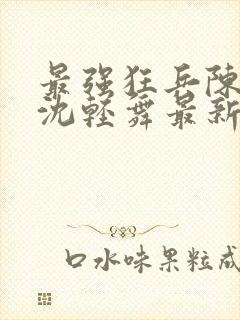 最强狂兵陳
沈輕舞最新
口水味果粒成